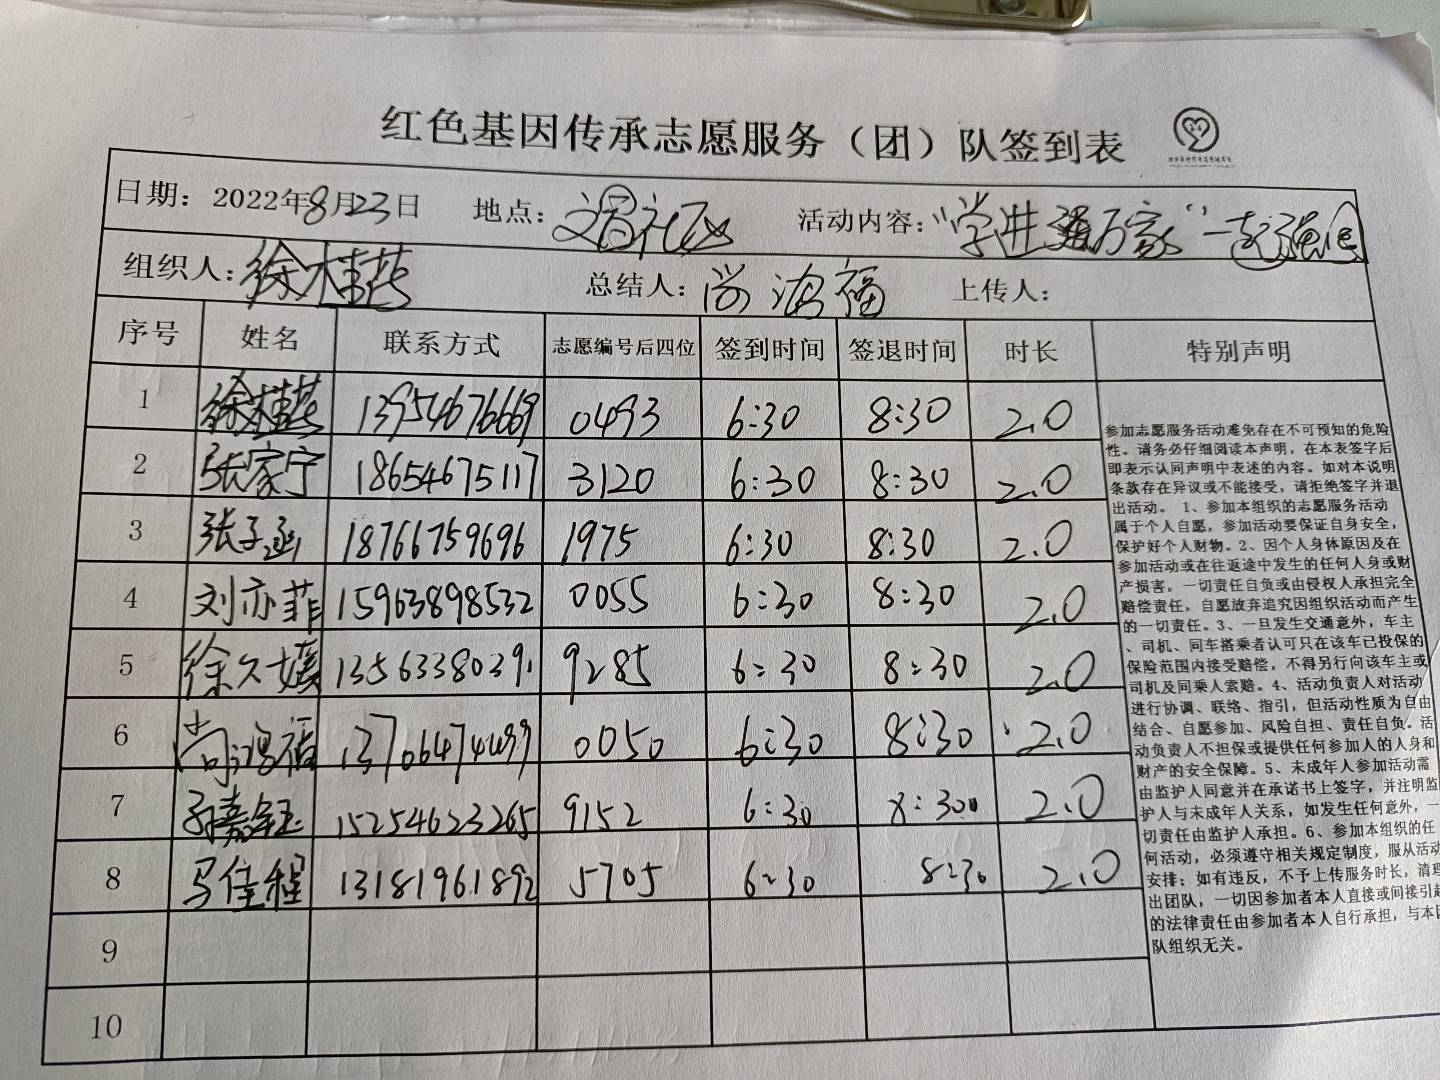 红色基因传承志愿服务（团）队签到表
日期：2022年8月23日 地点： 活动内容：“学进强万家”一起强国
组织人：徐桂燕 总结人：尚鸿福 上传人：
序号 姓名 联系方式 志愿编号后四位 签到时间 签退时间 时长 特别声明
1 徐桂燕 13954676669 0493 6:30 8:30 2.0
2 张家宁 18654675117 3120 6:30 8:30 2.0
3 张子涵 18766759696 1975 6:30 8:30 2.0
4 刘亦菲 15963898532 0055 6:30 8:30 2.0
5 徐久媛 13563380391 9285 6:30 8:30 2.0
6 尚鸿福 0050 6:30 8:30 2.0
7 孙嘉钰 15254623265 9152 6:30 8:30 2.0
8 马佳程 13181961892 5705 6:30 8:30 2.0
9
10
参加志愿服务活动难免存在不可预知的危险
性。请务必仔细阅读本声明，在本表签字后
即表示认同声明中表述的内容。如对本说明
条款存在异议或不能接受，请拒绝签字并退
出活动。 1、参加本组织的志愿服务活动
属于个人自愿，参加活动要保证自身安全，
保护好个人财物。2、因个人身体原因及在
参加活动或在往返途中发生的任何人身或财
产损害，一切责任自负或由侵权人承担完全
赔偿责任，自愿放弃追究因组织活动而产生
的一切责任。3、一旦发生交通意外，车主
、司机、同车搭乘者认可只在该车已投保的
保险范围内接受赔偿，不得另行向该车主或
司机及同乘人索赔。4、活动负责人对活动
进行协调、联络、指引，但活动性质为自由
结合、自愿参加、风险自担、责任自负。活
动负责人不担保或提供任何参加人的人身和
财产的安全保障。5、未成年人参加活动需
由监护人同意并在承诺书上签字，并注明监
护人与未成年人关系，如发生任何意外，一
切责任由监护人承担。6、参加本组织的任
何活动，必须遵守相关规定制度，服从活动
安排；如有违反，不予上传服务时长，清理
出团队，一切因参加者本人直接或间接引起
的法律责任由参加者本人自行承担，与本团
队组织无关。